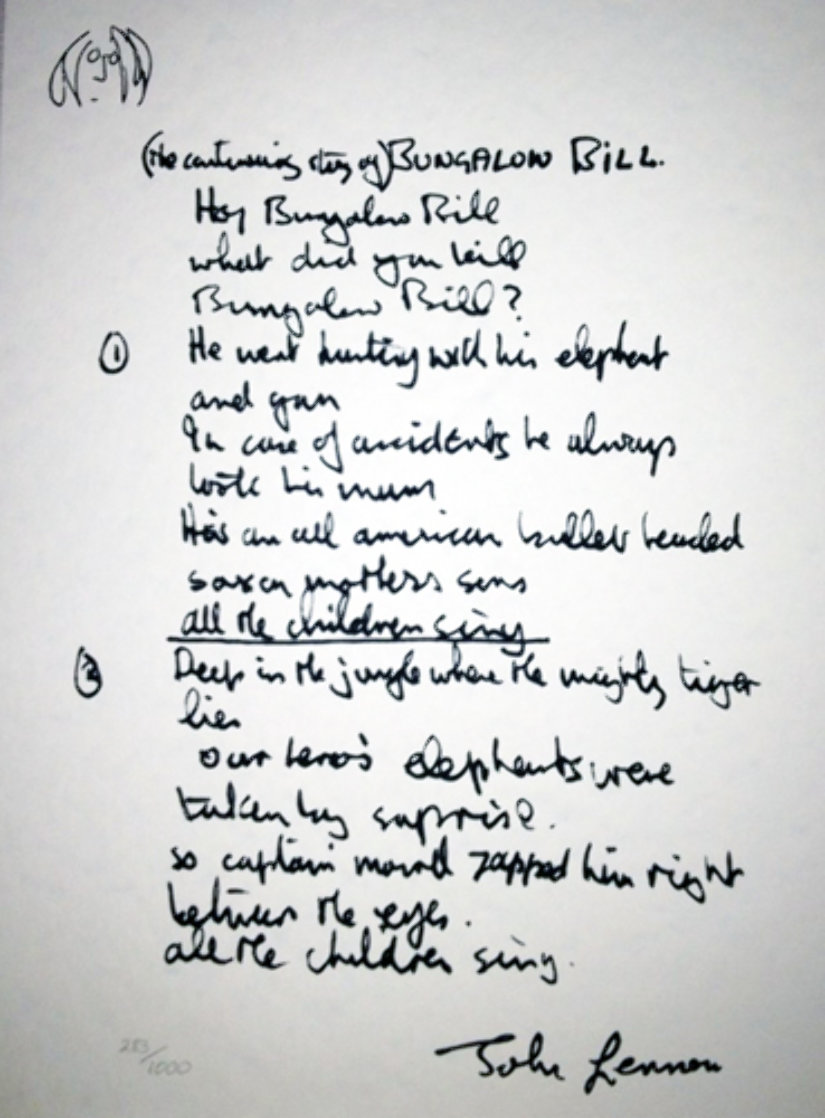 (the continuing story of) BUNGALOW BILL.
Hey Bungalow Bill
what did you kill
Bungalow Bill?
① He went hunting with his elephant
and gun
In case of accidents he always
took his mum
He's an all american bullet headed
saxon mothers sons
all the children sing
② Deep in the jungle where the mighty tiger
lies
our hero's elephants were
taken by suprise.
so captain marvell zapped him right
between the eyes.
all the children sing.
283/1000
John Lennon